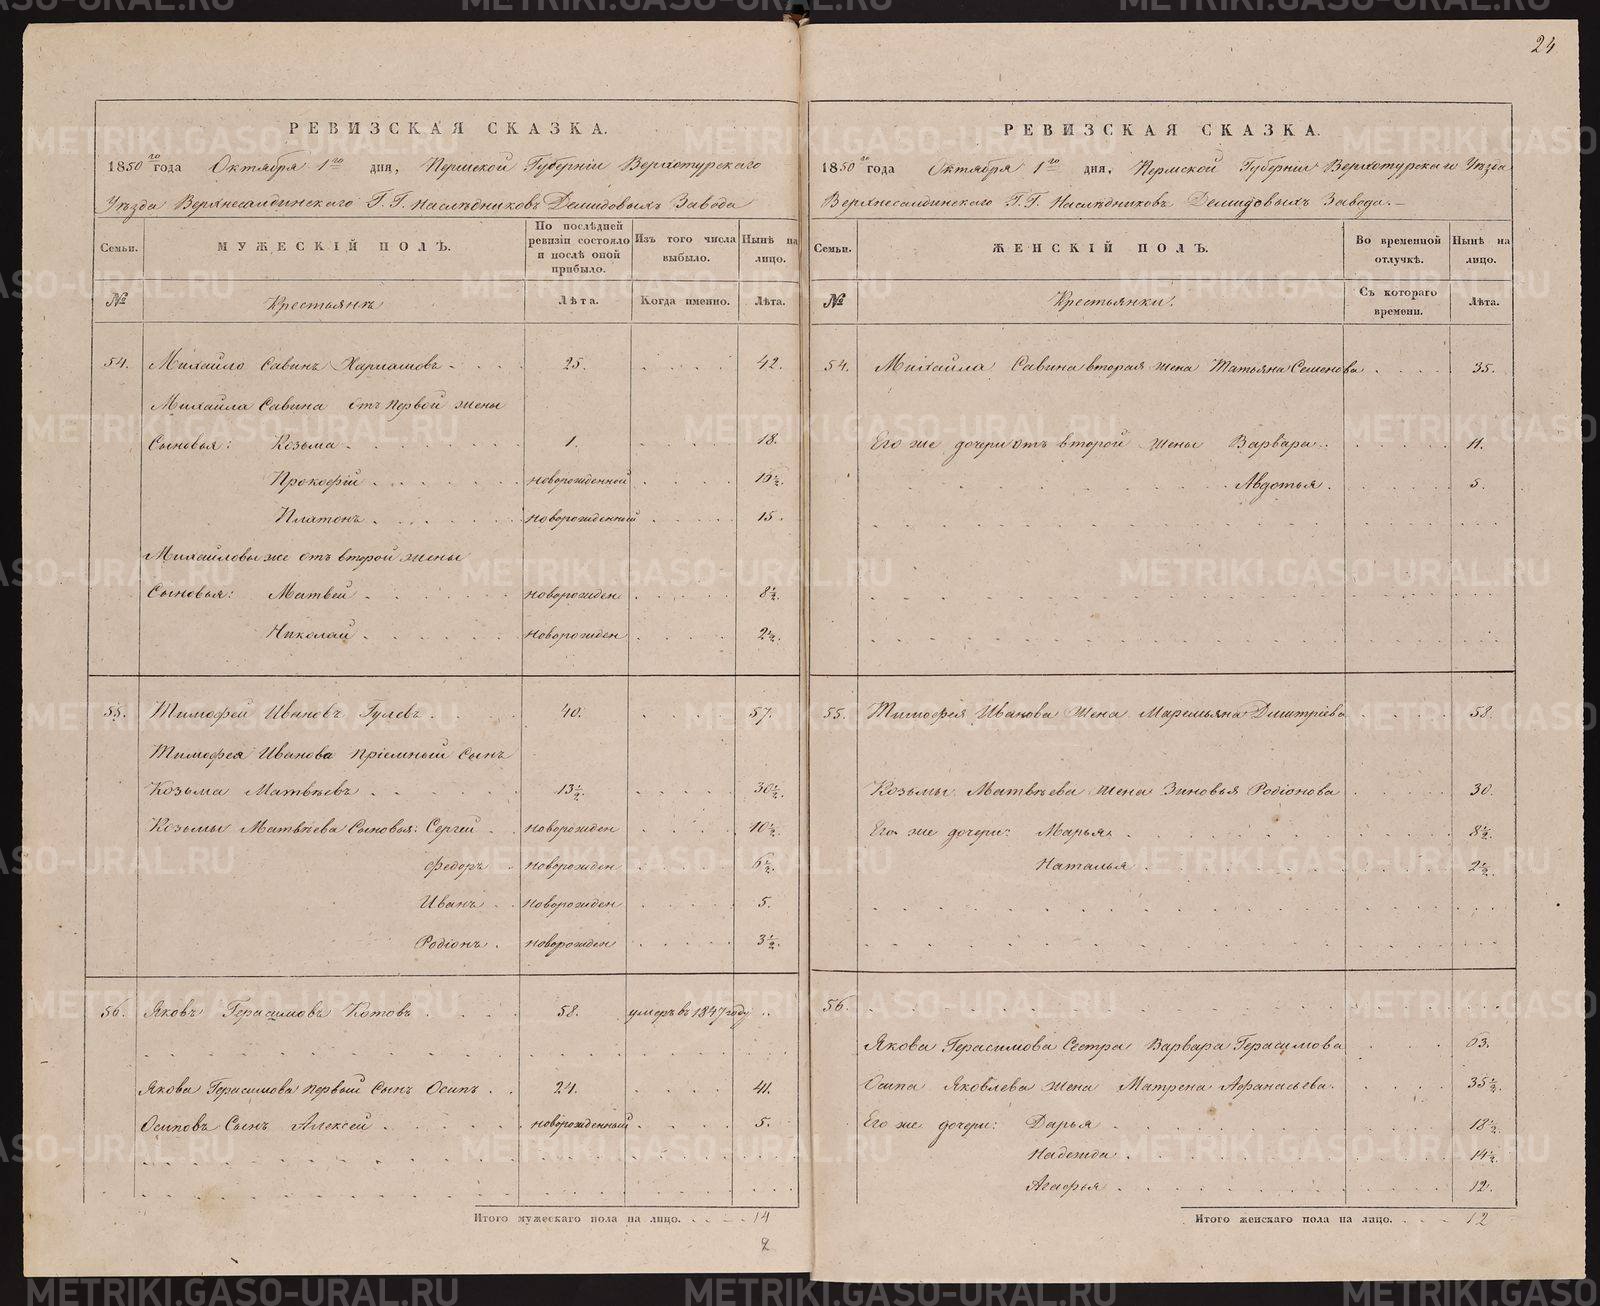 24
РЕВИЗСКАЯ СКАЗКА.
1850го года Октября 1го дня, Пермской Губерніи Верхотурскаго
Уѣзда Верхнесалдинскаго Г.Г. Наслѣдниковъ Демидовыхъ Завода
Семьи.
МУЖЕСКІЙ ПОЛЪ.
По послѣдней ревизіи состояло и послѣ оной прибыло.
Изъ того числа выбыло.
Нынѣ на лицо.
№
Крестьянъ
Лѣта.
Когда именно.
Лѣта.
54. Михайло Савинъ 25. 42.
Михайла Савина отъ первой жены
Сыновья: Козьма 1. 18.
Прокофій новорожденной 16½.
Платонъ новорожденный 15.
Михайловы же отъ второй жены
Сыновья: Матвей новорожден 8½.
Николай новорожден 2½.
55. Тимофей Ивановъ Гулевъ 40. 57.
Тимофея Иванова пріемный сынъ
Козьма Матвѣевъ 13½. 30½.
Козьмы Матвѣева Сыновья: Сергей новорожден 10½.
Федоръ новорожден 6½.
Иванъ новорожден 5.
Родіонъ новорожден 3½.
56. Яковъ Герасимовъ Котовъ 58. умеръ въ 1847 году
Якова Герасимова первый Сынъ Осипъ 24. 41.
Осиповъ Сынъ Алексей новорожденный 5.
Итого мужескаго пола на лицо. 14
2
РЕВИЗСКАЯ СКАЗКА.
1850го года Октября 1го дня, Пермской Губерніи Верхотурскаго Уѣзда
Верхнесалдинскаго Г.Г. Наслѣдниковъ Демидовыхъ Завода.
Семьи.
ЖЕНСКІЙ ПОЛЪ.
Во временной отлучкѣ.
Нынѣ на лицо.
№
Крестьянки.
Съ котораго времени.
Лѣта.
54. Михайла Савина вторая жена Татьяна Семенова 35.
Его же дочери отъ второй жены Варвара 11.
Авдотья 5.
55. Тимофея Иванова жена Маремьяна Дмитріева 58.
Козьмы Матвѣева жена Зиновья Родіонова 30.
Его же дочери: Марья 8½.
Наталья 2½.
56.
Якова Герасимова Сестра Варвара Герасимова 63.
Осипа Яковлева жена Матрена Афанасьева. 35½.
Его же дочери: Дарья 18½.
Надежда 14½.
Агафья 12.
Итого женскаго пола на лицо. 12
METRIKI.GASO-URAL.RU